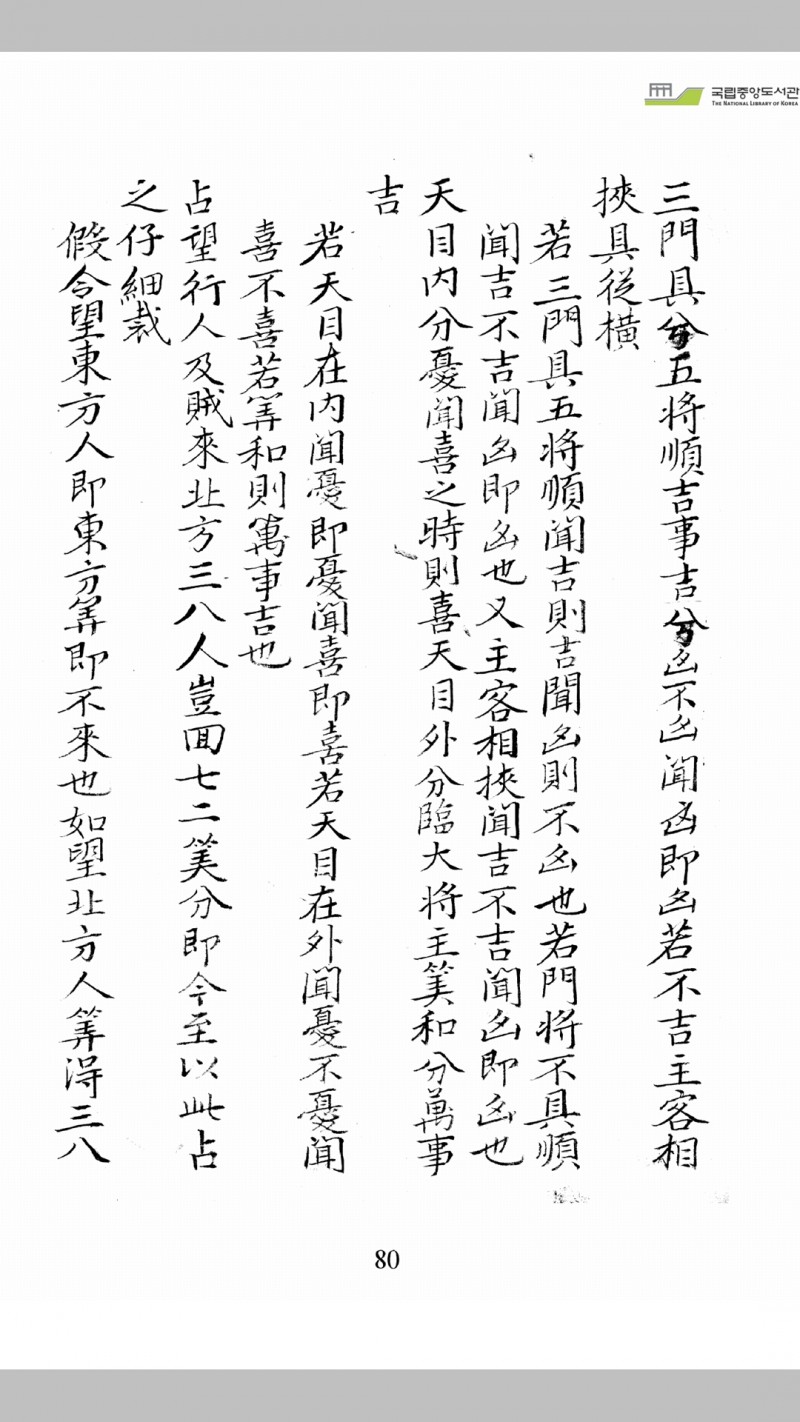 국립중앙도서관
THE NATIONAL LIBRARY OF KOREA
三門具兮五将順吉事吉兮凶不凶聞凶即凶若不吉主客相
挾具從橫
若三門具五将順聞吉則吉聞凶則不凶也若門将不具順
聞吉不吉聞凶即凶也又主客相挾聞吉不吉聞凶即凶也
天目内分憂聞喜之時則喜天目外分臨大将主筭和分萬事
吉
若天目在内聞憂即憂聞喜即喜若天目在外聞憂不憂聞
喜不喜若筭和則萬事吉也
占望行人及賊來北方三八人豈囬七二筭分即今至以此占
之仔細裁
假令望東方人即東方筭即不來也如望北方人筭得三八
80